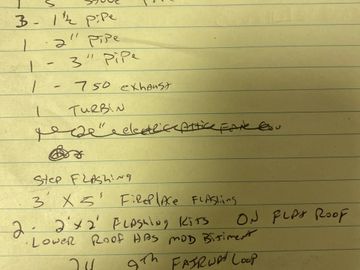 1 3" STOVE PIPE
3 - 1½ PIPE
1 2" PIPE
1 - 3" PIPE
1 - 750 exhaust
1 TURBIN
Step Flashing
3' X 5' FirePlace Flashing
2 - 2'x2' Flashing Kits ON FLAT ROOF
LOWER ROOF HAS MOD Bitiment
9th FAIRWAY LOOP